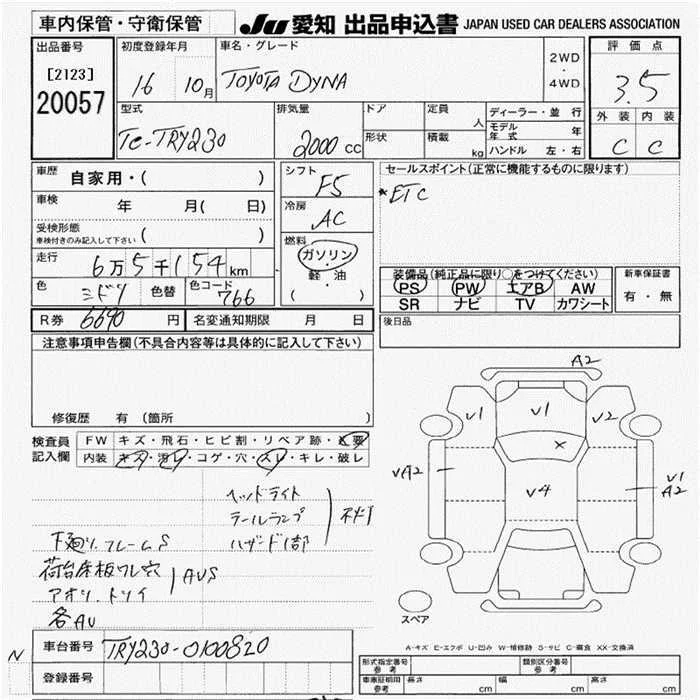 車内保管・守衛保管
JU 愛知 出品申込書 JAPAN USED CAR DEALERS ASSOCIATION
出品番号
[2123]
20057
初度登録年月
16 10月
車名・グレード
TOYOTA DYNA
2WD
・
4WD
評価点
3.5
外装 内装
C C
型式
TC-TRY230
排気量
2000 cc
ドア
形状
定員 人
積載 kg
ディーラー・並 行
モデル年式 年
ハンドル 左・右
車歴 自家用・( )
車検 年 月( 日)
受検形態
車検付きのみ記入して下さい ( )
走行 6万5千154km
色 ミドリ 色替 色コード 766
シフト F5
冷房 AC
燃料
ガソリン
・
軽・油
( )
セールスポイント(正常に機能するものに限ります)
*ETC
装備品(純正品に限り○をつけてください)
PS PW エアB AW
SR ナビ TV カワシート
新車保証書
有・無
R券 6690 円 名変通知期限 月 日
後日品
注意事項申告欄(不具合内容等は具体的に記入して下さい)
修復歴 有 (箇所 )
検査員記入欄
FW キズ・飛石・ヒビ割・リペア跡・×要
内装 キズ・汚レ・コゲ・穴・スレ・キレ・破レ
ヘッドライト
テールランプ
ハザード1部
下廻リ、フレームS
荷台床板ワレ穴
アオリ、トリイ
AUS
各AU
A2
V1 V1 V2
×
VA2 V4 V1
A2
スペア
N
車台番号 TRY230-0100820
登録番号
A-キズ E-エクボ U-凹み W-補修跡 S-サビ C-腐食 XX-交換済
形式指定番号 参考
類別区分番号 参考
車庫証明用 参考 長さ cm 幅 cm 高さ cm